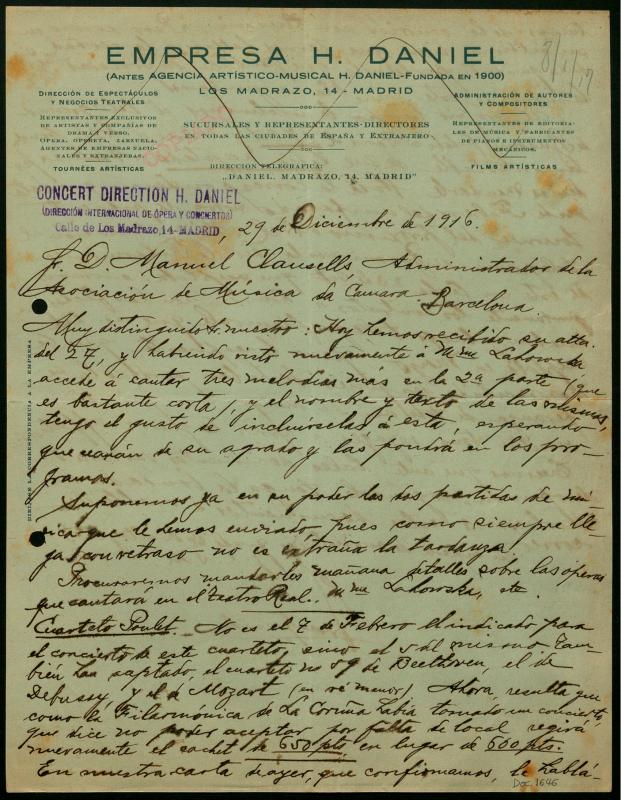 8/1/17
EMPRESA H. DANIEL
(ANTES AGENCIA ARTÍSTICO-MUSICAL H. DANIEL-FUNDADA EN 1900)
LOS MADRAZO, 14 - MADRID
DIRECCIÓN DE ESPECTÁCULOS
Y NEGOCIOS TEATRALES
REPRESENTANTES EXCLUSIVOS
DE ARTISTAS Y COMPAÑÍAS DE
DRAMA Y VERSO,
OPERA, OPERETA, ZARZUELA,
AGENTES DE EMPRESAS NACIO-
NALES Y EXTRANJERAS.
TOURNÉES ARTÍSTICAS
SUCURSALES Y REPRESENTANTES-DIRECTORES
EN TODAS LAS CIUDADES DE ESPAÑA Y EXTRANJERO
DIRECCION TELEGRÁFICA:
„DANIEL. MADRAZO, 14. MADRID"
ADMINISTRACIÓN DE AUTORES
Y COMPOSITORES
REPRESENTANTES DE EDITORIA-
LES DE MÚSICA Y FABRICANTES
DE PIANOS E INSTRUMENTOS
MECÁNICOS.
FILMS ARTÍSTICAS
CONCERT DIRECTION H. DANIEL
(DIRECCIÓN INTERNACIONAL DE ÓPERA Y CONCIERTOS)
Calle de Los Madrazo, 14-MADRID
, 29 de Diciembre de 1916.
Sr. D. Manuel Clausells, Administrador de la
Asociación de Música da Camara Barcelona.
Muy distinguido Sr. nuestro: Hoy hemos recibido su atta.
del 27, y habiendo visto nuevamente á Mme Lahowska
accede á cantar tres melodias más en la 2ª parte (que
es bastante corta), y el nombre y texto de las mismas,
tengo el gusto de incluirselas á esta, esperando
que serán de su agrado y las pondrá en los pro-
gramas.
Suponemos ya en su poder las dos partidas de mú-
sica que le hemos enviado pues como siempre lle-
ga con retraso no es extraña la tardanza
Procuraremos mandarles mañana detalles sobre las óperas
que cantará en el Teatro Real. Mme Lahowska, etc.
Cuarteto Poulet. No es el 7 de Febrero el indicado para
el concierto de este cuarteto, sino el 5 del mismo. Tam-
bién han aceptado, el cuarteto no 59 de Beethoven, el de
Debussy, y el de Mozart (en re menor). Ahora, resulta que
como la Filarmónica de La Coruña habia tomado un concierto,
que dice no poder aceptar por falta de local regirá
nuevamente el cachet de 650 pts, en lugar de 600 pts.
En nuestra carta de ayer, que confirmamos, le hablá-
Doc 1646
DIRIJASE LA CORRESPONDENCIA A LA EMPRESA